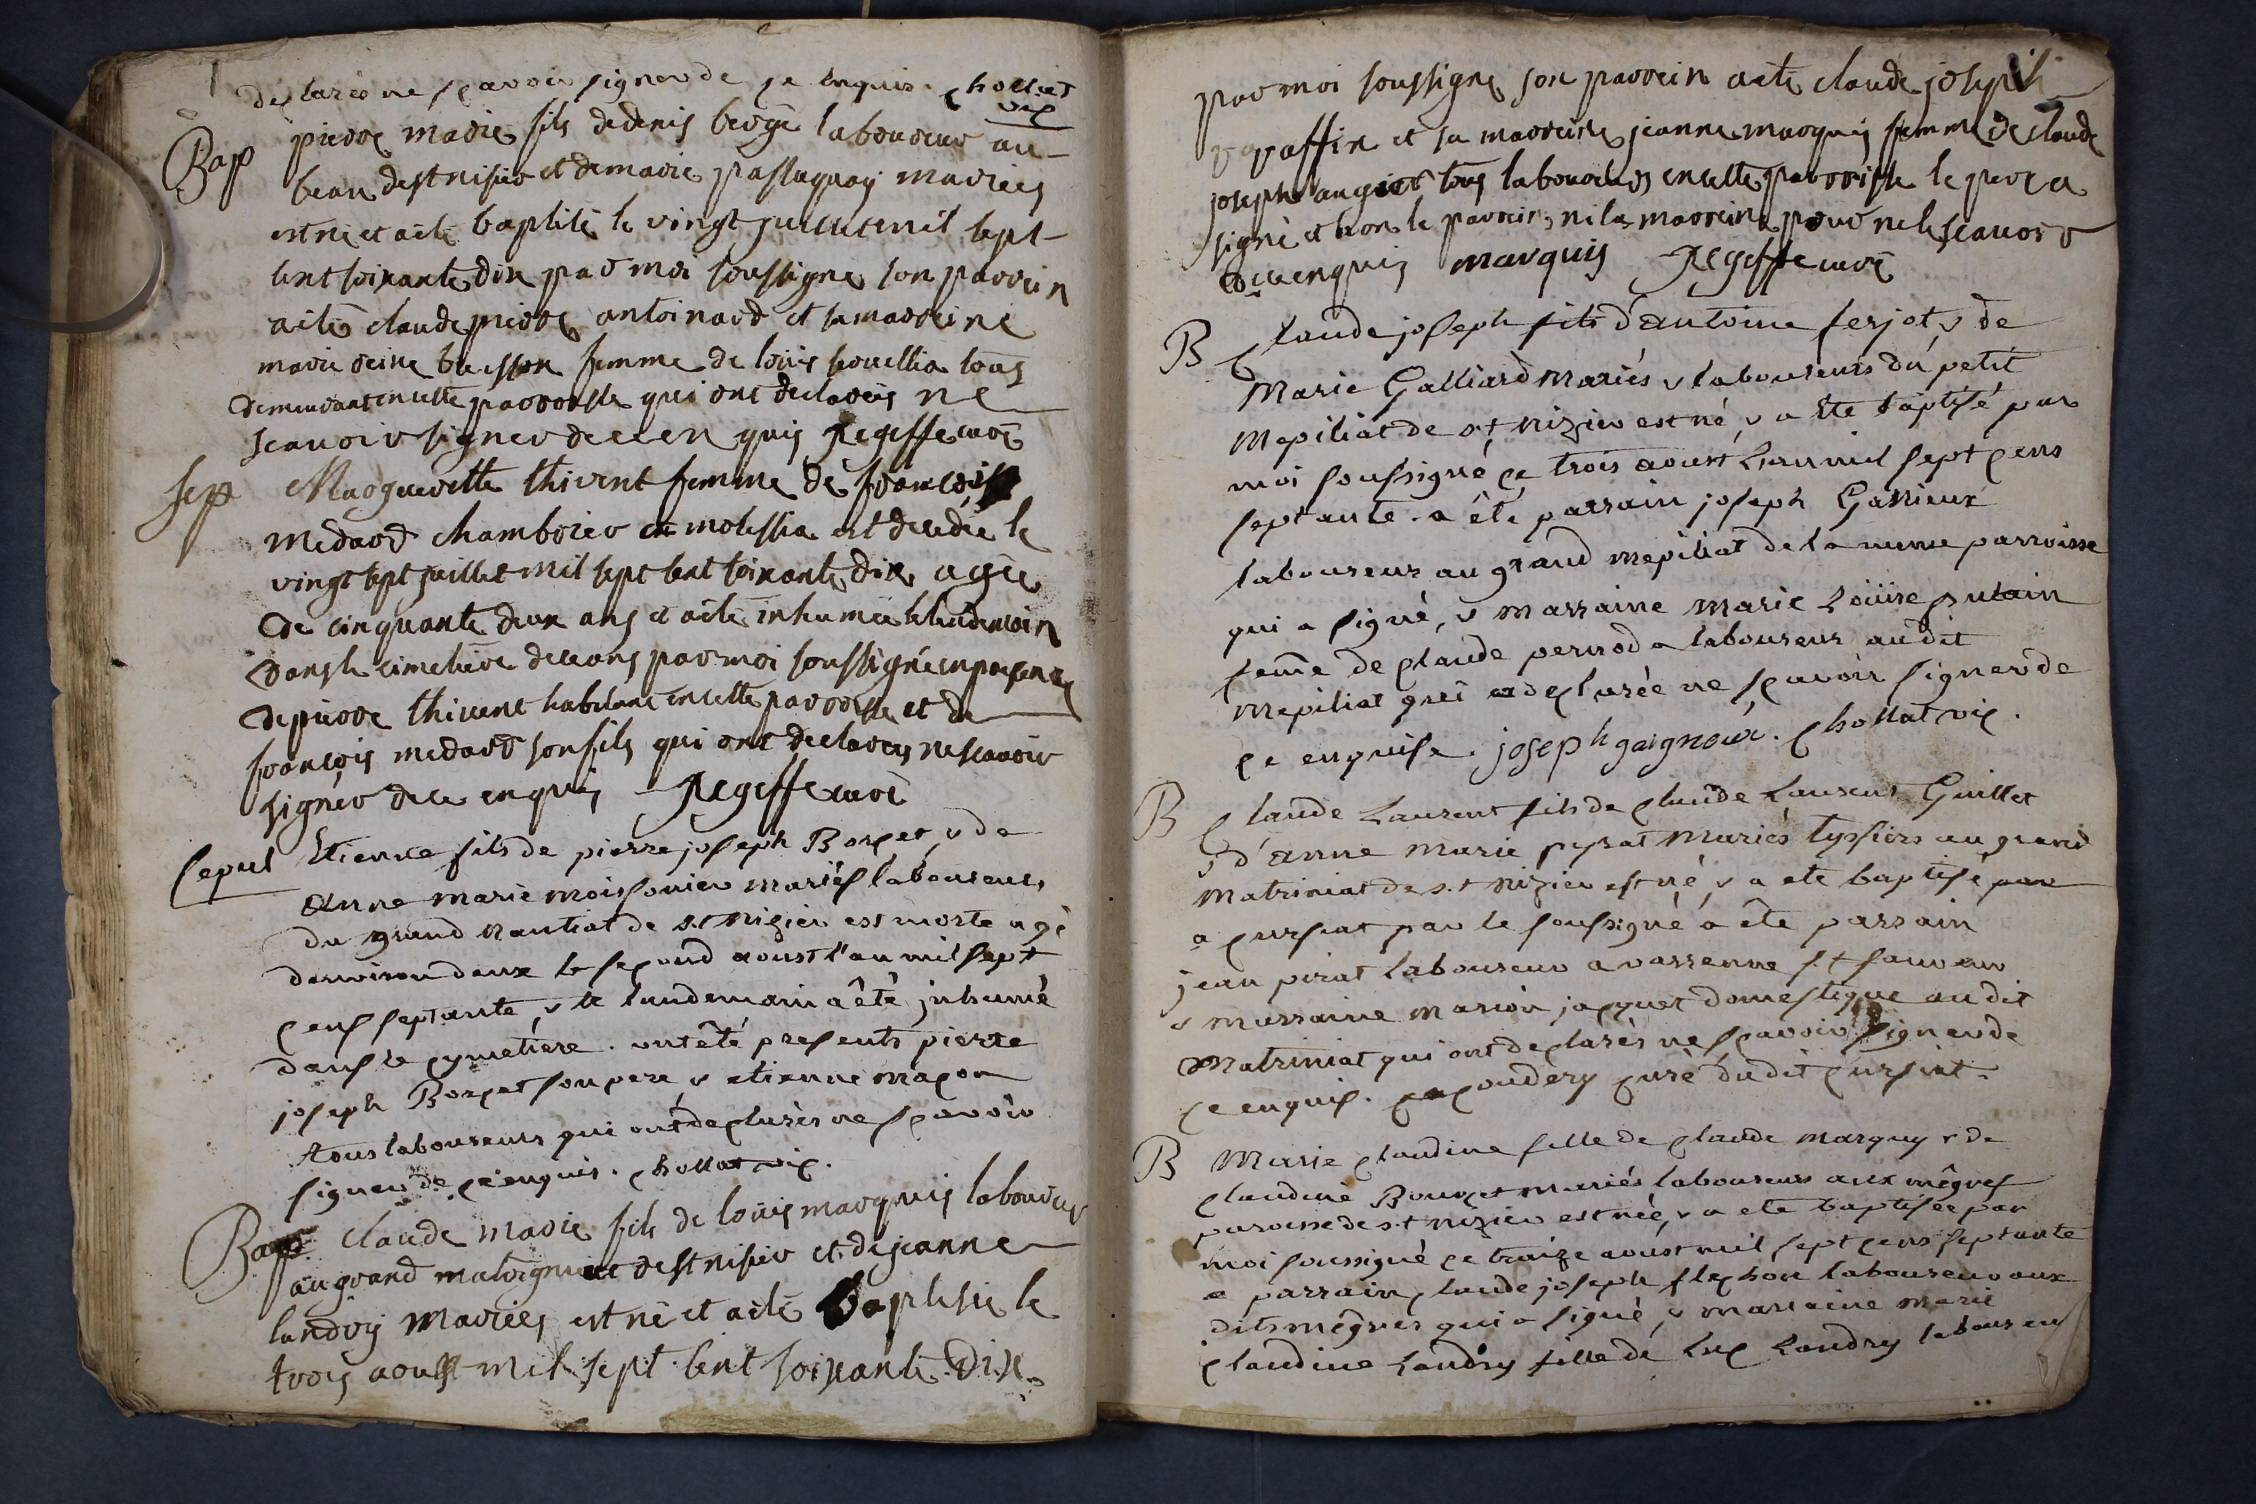 declarés ne scavoir signer de ce enquis. chollat
vic
Bap pierre marie fils de denis berge laboureur au
beau de st nisier et de marie passaquay mariés
est né et a èté baptisé le vingt juillet mil sept
cent soixante dix par moi soussigné son parrein
a èté claude pierre antoinard et sa marreine
marie reine buisson femme de loüis bouillia tous
demeurant en cette parroisse qui ont declarés ne
scauoir signer de ce en quis Regeffe curé
sep Marguerette thivent femme de francois
medard chambrier en molessia est decedée le
vingt sept juillet mil sept cent soixante dix agée
de cinquante deux ans et a èté inhumée le lendemain
dans le cimetière de ceans par moi soussigné en presence
de pierre thivent habitant en cette parroisse et de
francois medard son fils qui ont declarés ne scauoir
signér de ce enquis Regeffe curé
sepul Etienne fils de pierre joseph Borget, v de
Anne marie moissonier mariés laboureurs
du grand nantiat de s.t nizier est morte agé
d'environ deux le second aoust l'an mil sept
cens septante, v le landemain a êté jnhumé
dans le cymetiere. ont êté presents pierre
joseph Borget son pere v etienne maçon
tous laboureurs qui ont declarés ne scavoir
signer de ce enquis. chollat vic.
Bap claude marie fils de loüis marquis laboureur
au grand matrigniat de st nisier et de jeanne
landry mariées est né et a èté baptisée le
trois aoust mil sept cent soixante dix
par moi soussigné son parrein a èté claude joseph
raffin et sa marreine jeanne marquis femme de claude
joseph laboureurs en cette parroisse le pere a
signé et non le parrein, ni la marreine pour ne le scauoir
de ce enquis marquis Regeffe curé
B Claude joseph fils d'antoine ferjot, v de
Marie Galliard mariés v laboureurs du petit
Mepiliat de s.t nizier est né, v a ète baptisé par
moi soussigné ce trois aoust l'an mil sept cens
septante. a êté parrain joseph Ganieux
laboureur au grand mepiliat de la meme parroisse
qui a signé, v marraine Marie Loüise putain
feme de claude perrod laboureur audit
mepiliat qui a declarée ne scavoir signer de
ce enquise. joseph gaigneux. chollat vic.
B Claude Laurent fils de claude Laurent Guillet
v d'anne marie peyrat mariés tyssiers au grand
matriniat de s.t nizier est né, v a ete baptisé par
a curciat par le soussigné a ête parrain
jean pirat laboureur a varenne s.t sauveur
v marraine marion jacquet domestique audit
matriniat qui ont declarés ne scavoir signer de
ce enquis. coudery curé dudit curciat.
B Marie claudine fille de claude marquy v de
claudine Bourget mariés laboureurs aux mêgres
paroisse de s.t nizier est née, v a ete baptisée par
moi soussigné ce traize aoust mil sept cens septante
a parrain, claude joseph flechon laboureur aux
dits mêgres qui a signé, v marraine marie
claudine Landry fille de Luc Landry laboureur